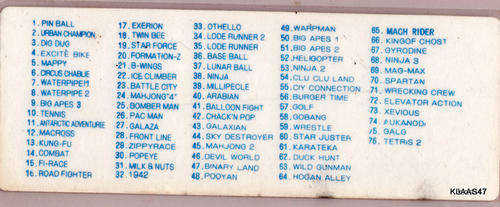 1. PIN BALL
2. URBAN CHAMPION
3. DIG DUG
4. EXCITE BIKE
5. MAPPY
6. CIRCUS CHABLIE
7. WATERPIPE11
8. WATERPIPE 2
9. BIG APES 3
10. TENNIS
11. ANTARCTIC ADVENTURE
12. MACROSS
13. KUNG-FU
14. COMBAT
15. FI-RACE
16. ROAD FIGHTER
17. EXERION
18. TWIN BEE
19. STAR FORCE
20. FORMATION-Z
21. B-WINGS
22. ICE CLIMBER
23. BATTLE CITY
24. MAHJONG"4"
25. BOMBER MAN
26. PAC MAN
27. GALAZA
28. FRONT LINE
29. ZIPPYRACE
30. POPEYE
31. MILK & NUTS
32. 1942
33. OTHELLO
34. LODE RUNNER 2
35. LODE RUNNER
36. BASE BALL
37. LUNAR BALL
38. NINJA
39. MILLIPECLE
40. ARABIAN
41. BALLOON FIGHT
42. CHACK'N POP
43. GALAXIAN
44. SKY DESTROYER
45. MAHJONG 2
46. DEVIL WORLD
47. BINARY LAND
48. POOYAN
49. WARPMAN
50. BIG APES 1
51. BIG APES 2
52. HELIGOPTER
53. NINJA 2
54. CLU CLU LAND
55. CIY CONNECTION
56. BURGER TIME
57. GOLF
58. GOBANG
59. WRESTLE
60. STAR JUSTER
61. KARATEKA
62. DUCK HUNT
63. WILD GUNMAN
64. HOGAN ALLEY
65. MACH RIDER
66. KINGOF CHOST
67. GYRODINE
68. NINJA 3
69. MAG-MAX
70. SPARTAN
71. WRECKING CREW
72. ELEVATOR ACTION
73. XEVIOUS
74. FUKANOO
75. GALG
76. TETRIS 2
KBAAS47